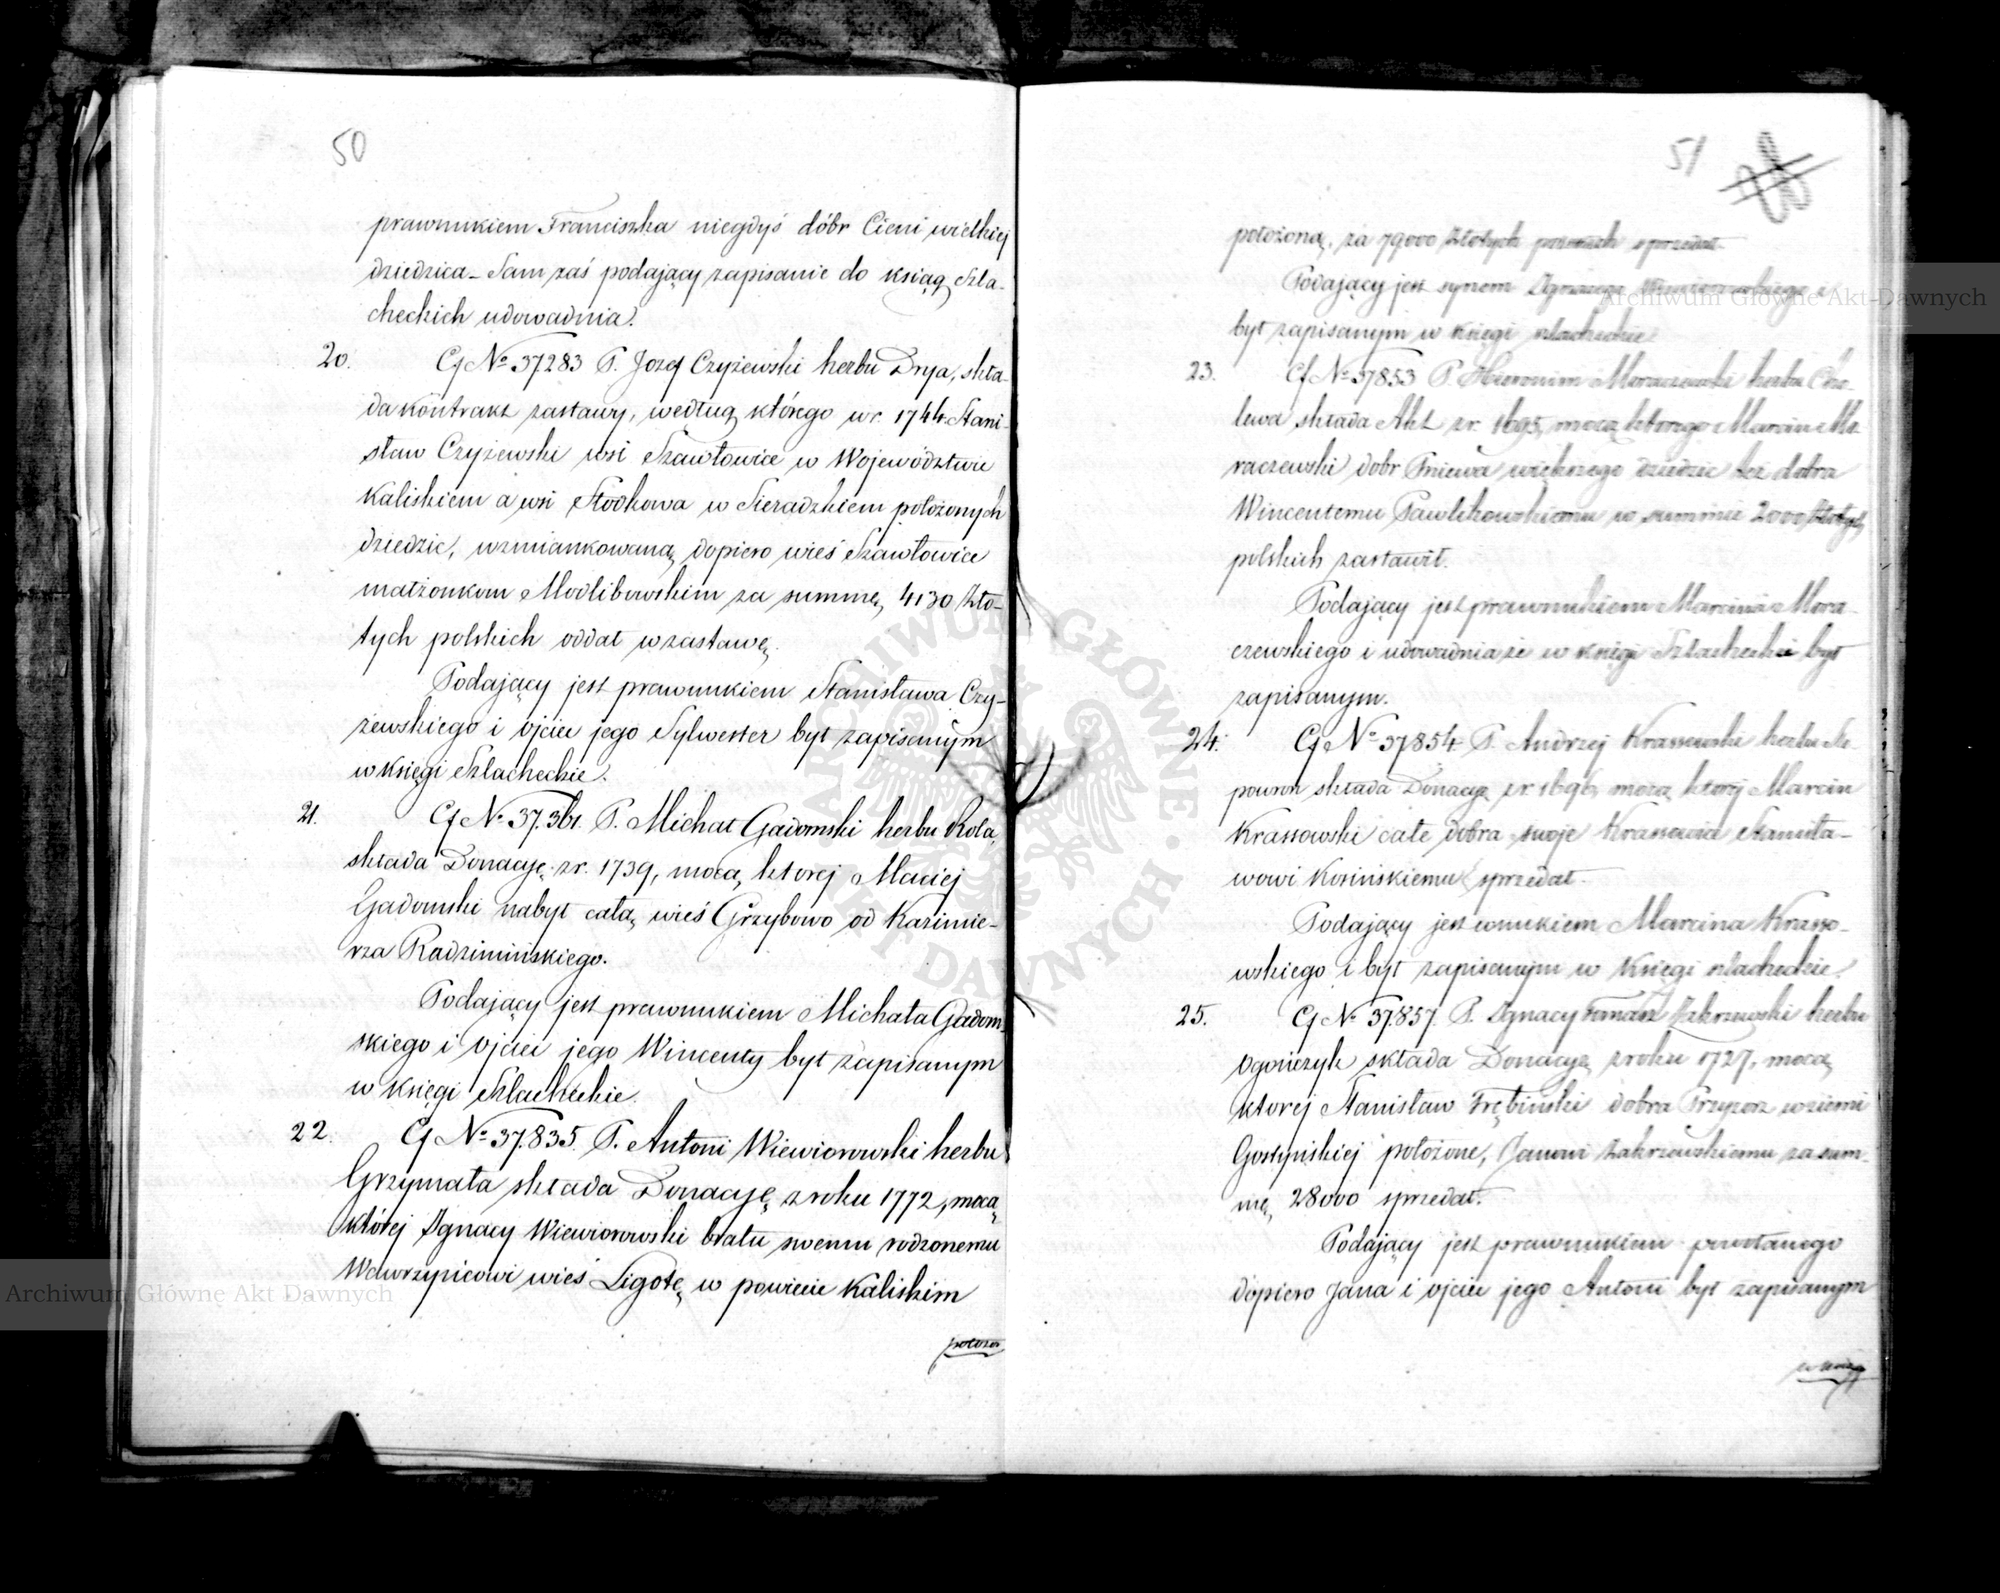 50
prawnukiem Franciszka niegdyś dóbr Cieni wielkiej
dziedzica – Sam zaś podający zapisanie do ksiąg Szla-
checkich udowadnia.
20. Cf № 37283 P. Jozef Czyżewski herbu Drya, skła-
da kontrakt zastawy, według którego w r. 1744 Stani-
sław Czyżewski wsi Szawłowice w Województwie
Kaliskiem a wsi Stodkowa w Sieradzkiem położonych
dziedzic, wzmiankowaną dopiero wieś Szawłowice
małżonkom Modlibowskim za summę 4130 zło-
tych polskich oddał w zastawę.
Podający jest prawnukiem Stanisława Czy-
żewskiego i ojciec jego Sylwester był zapisanym
w księgi Szlacheckie.
21. Cf № 37.361. P. Michał Gadomski herbu Rola,
składa Donacyę z r. 1739, mocą ktorej Maciej
Gadomski nabył całą wieś Grzybowo od Kazimie-
rza Radzimińskiego.
Podający jest prawnukiem Michała Gadom-
skiego i ojciec jego Wincenty był zapisanym
w księgi Szlacheckie.
22. Cf № 37.835. P. Antoni Wiewiorowski herbu
Grzymała składa Donacyę z roku 1772, mocą
której Ignacy Wiewiorowski bratu swemu rodzonemu
Wawrzyńcowi wieś Ligotę w powiecie Kaliskim
położo
51
położoną, za 79000 złotych polskich sprzedał.
Podający jest synem Ignacego Wiewiorowskiego i
był zapisanym w księgi szlacheckie.
23. Cf № 37853 P. Hieronim Moraczewski herbu Cho-
lewa składa Akt z r. 1695, mocą ktorego Marcin Mo
raczewski dobr Pniewa większego dziedzic też dobra
Wincentemu Pawlikowskiemu w summie 2000 złotych
polskich zastawił.
Podający jest prawnukiem Marcina Mora-
czewskiego i udowadnia że w księgi Szlacheckie był
zapisanym.
24. Cf № 37854 P. Andrzej Krassowski herbu Śle-
powron składa Donacyę z r. 1696, mocą ktorej Marcin
Krassowski całe dobra swoje Krassowia Stanisła-
wowi Kosińskiemu sprzedał.
Podający jest wnukiem Marcina Krasso-
wskiego i był zapisanym w Księgi szlacheckie.
25. Cf № 37857. P. Ignacy Tomasz Zakrzewski herbu
Ogończyk składa Donacyę z roku 1727, mocą
ktorej Stanisław Trębiński dobra w ziemi
Gostyńskiej położone, Janowi Zakrzewskiemu za sum-
mę 28000 sprzedał.
Podający jest prawnukiem powołanego
dopiero Jana i ojciec jego Antoni był zapisanym
w księg
Archiwum Główne Akt Dawnych
Archiwum Główne Akt Dawnych
ARCHIWUM GŁÓWNE AKT DAWNYCH